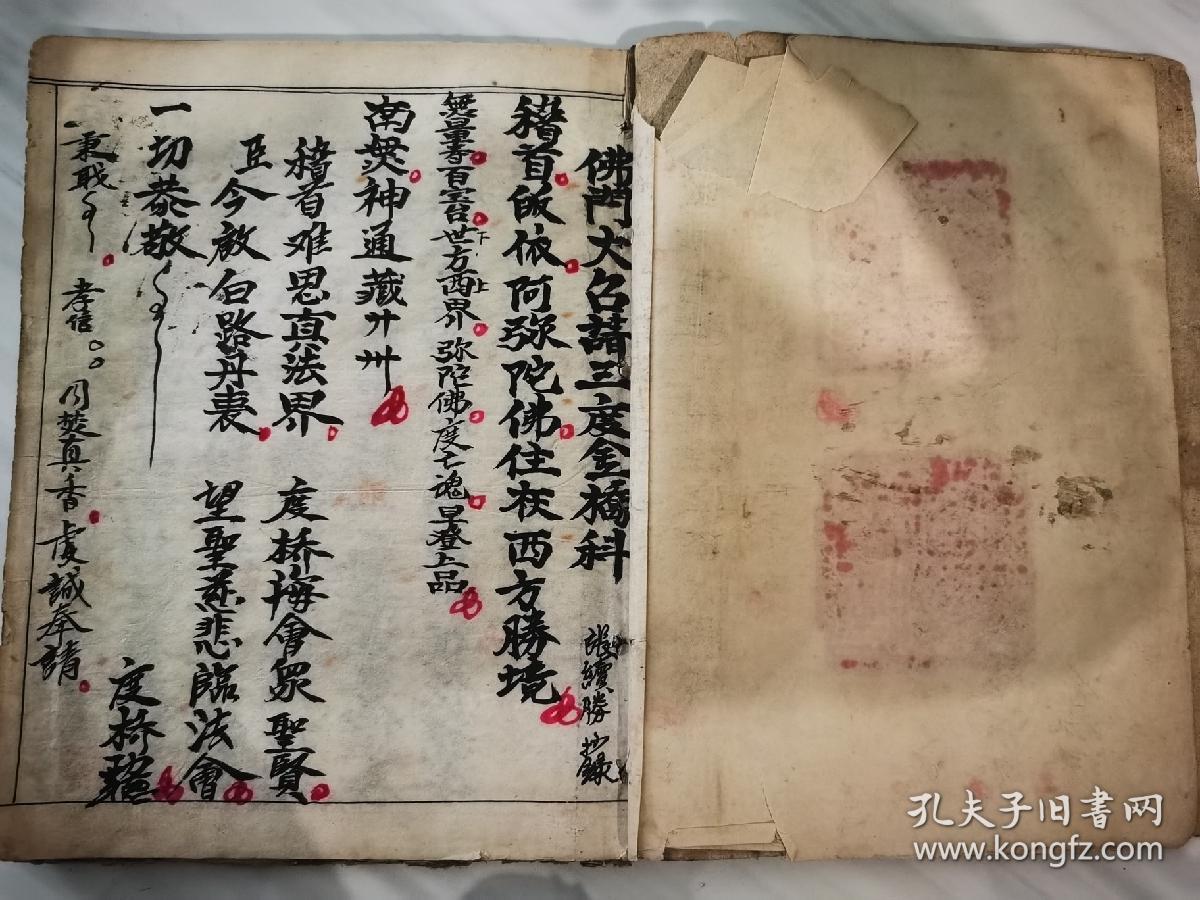 佛門大召請三度金橋科
張續勝 抄錄
稽首皈依阿弥陀佛住在西方勝境
無量壽百宝台世方西界弥陀佛度亡魂早登上品
下 上
南無神通藏廾卅
稽首难思真法界 度桥海會眾聖賢
臣今啟白路丹衷 望聖慈悲臨法會
一切恭敬 度桥
秉戝 孝信 同焚真香虔誠奉請
孔夫子旧书网
www.kongfz.com